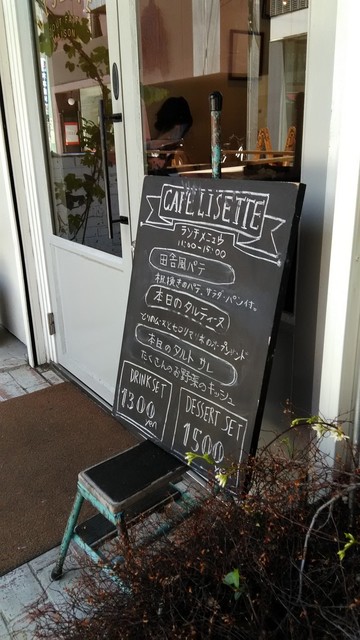 CAFÉ LISETTE
ランチメニュー
11:00-15:00
田舎風パテ
粗挽きのパテ、サラダ・パン付。
本日のタルティーヌ
本日のタルト サレ
たくさんのお野菜のキッシュ
DRINK SET
1300
yen
DESSERT SET
1500
yen